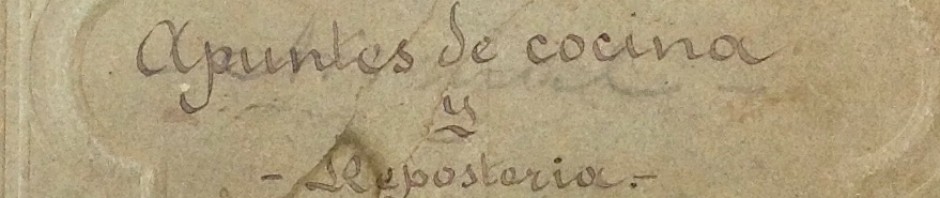 Apuntes de cocina
y
- Reposteria.-